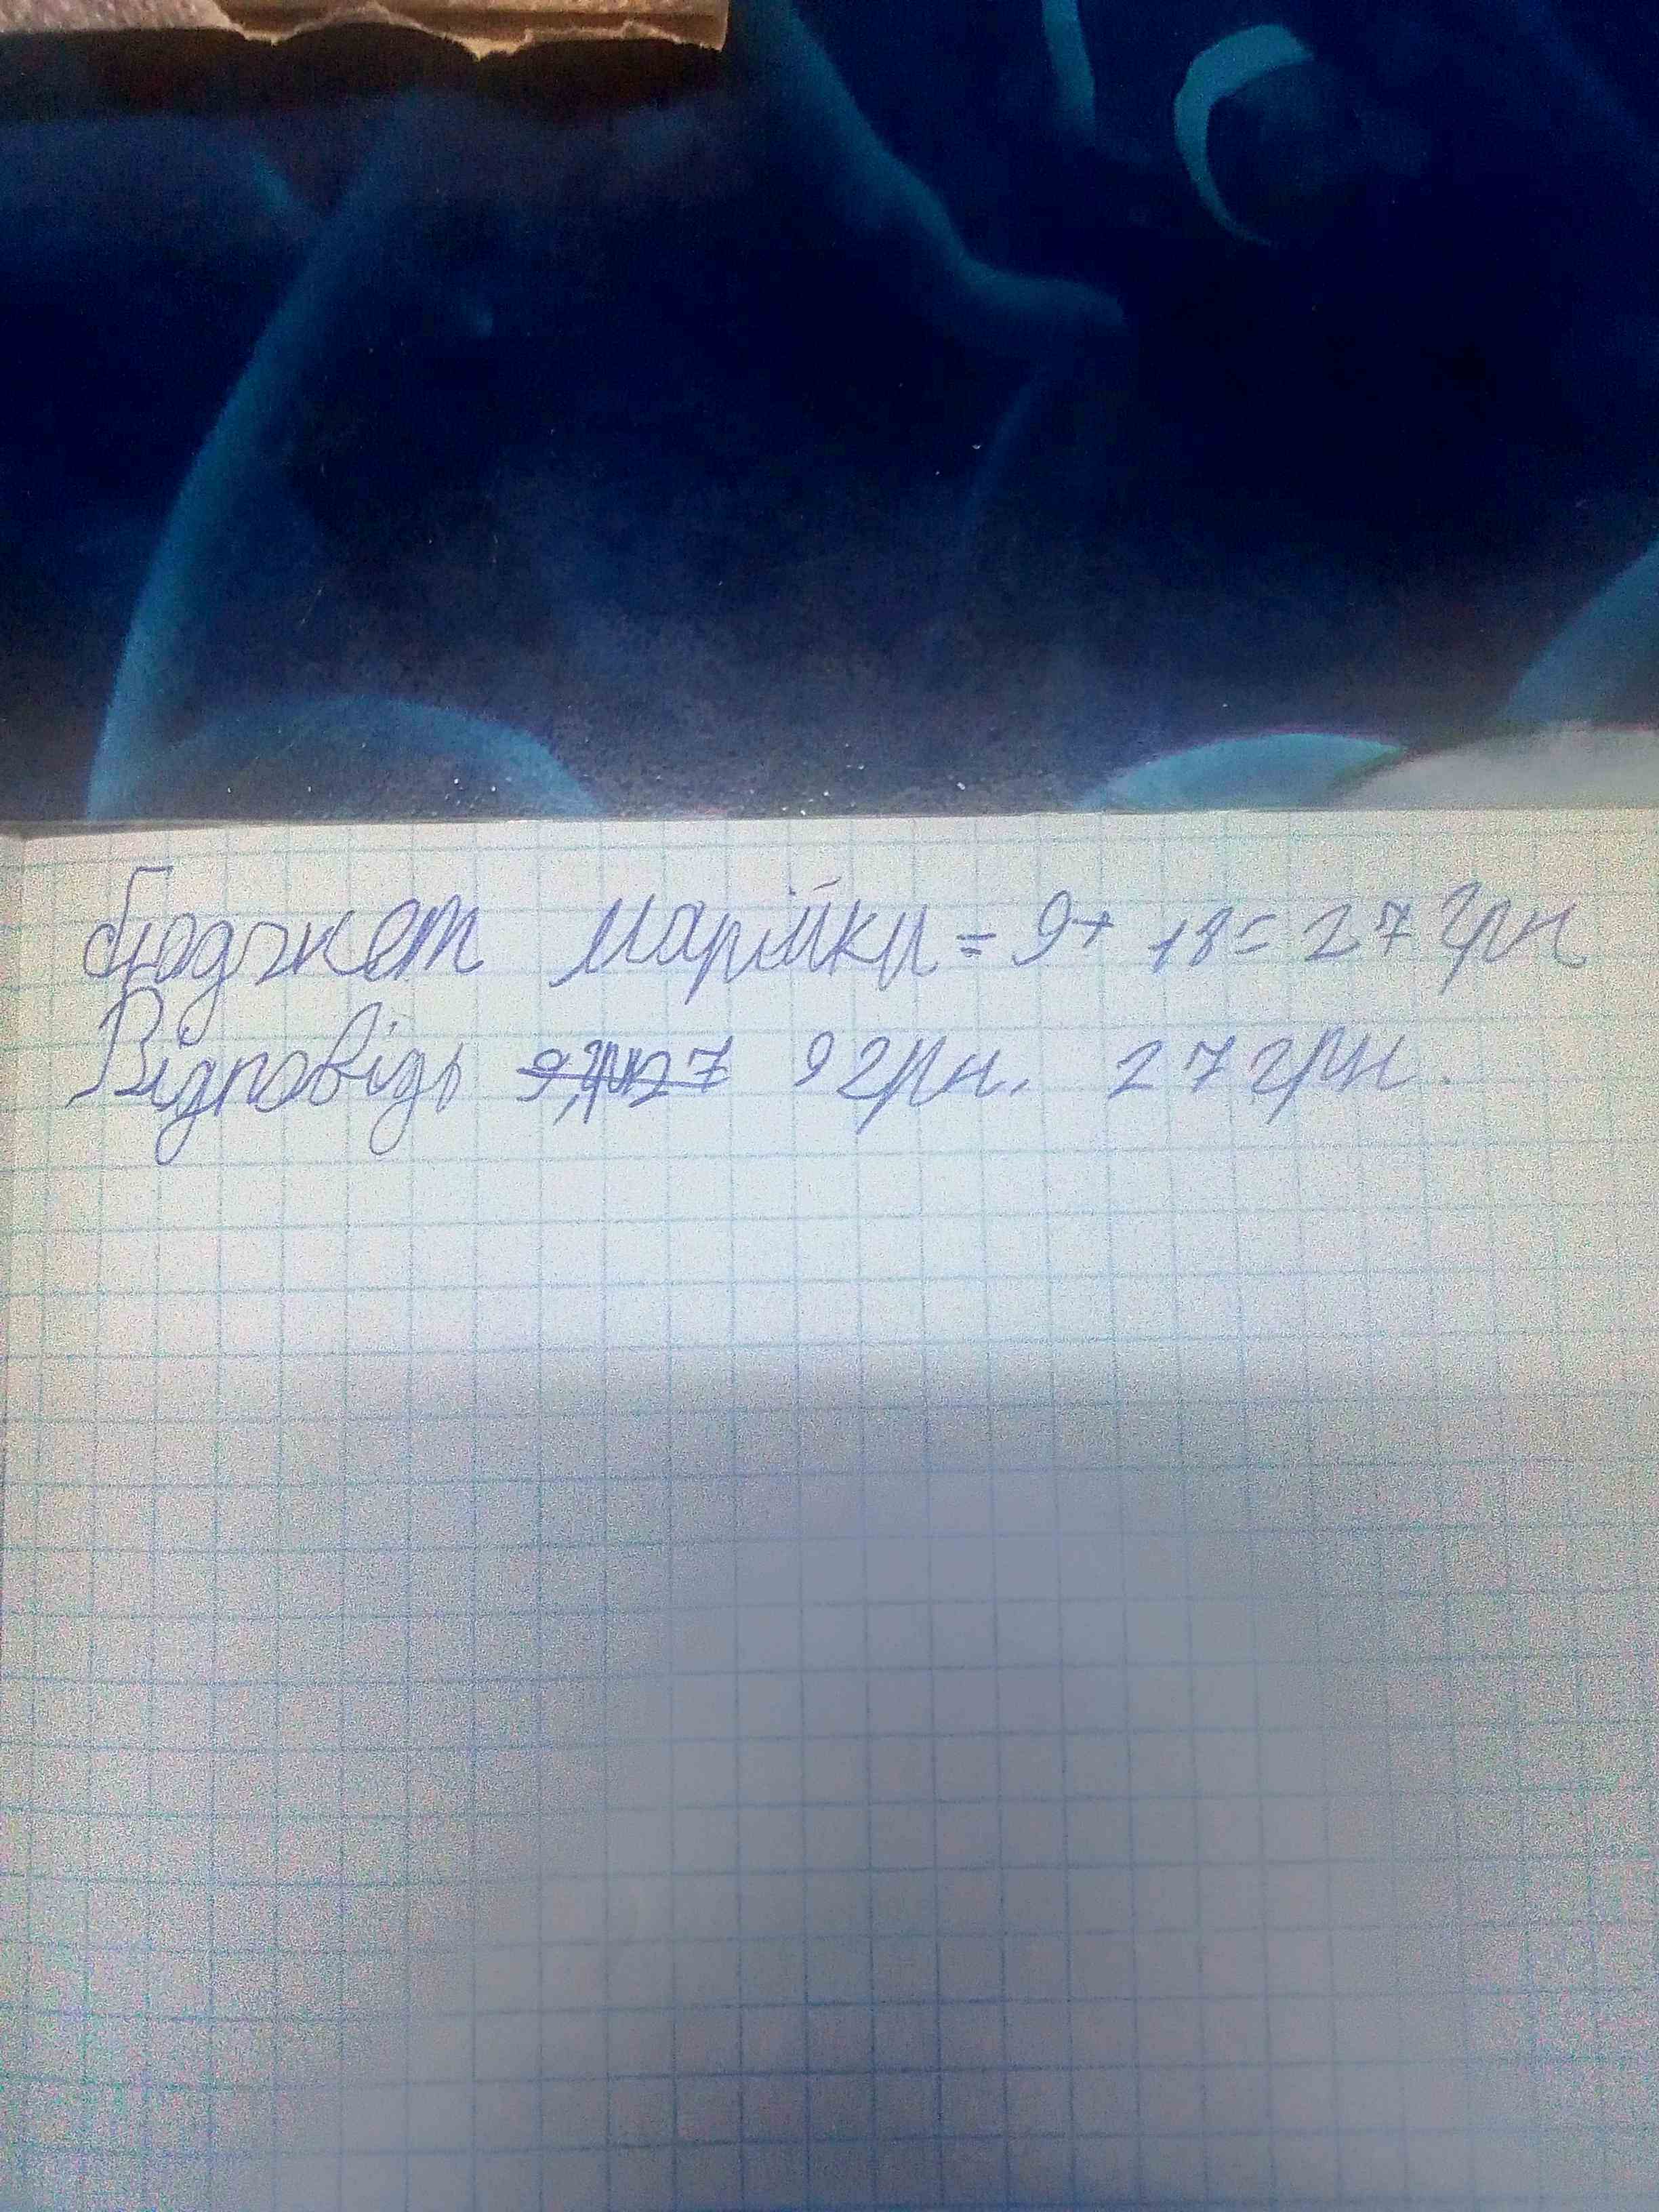 бюджет марійки = 9+ 18= 27 грн
Відповідь 9 грн. 27 грн.